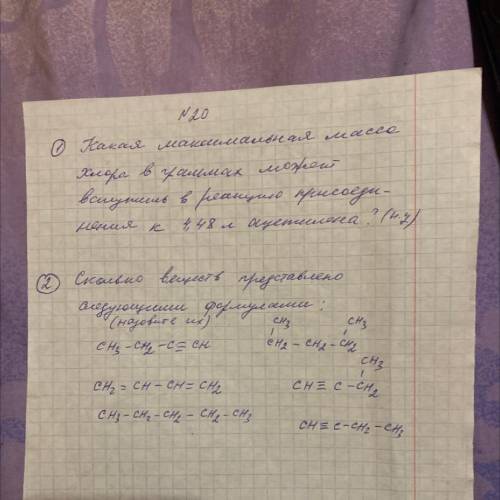 №20
① Какая максимальная масса
хлора в граммах может
вступить в реакцию присоеди-
нения к 4,48 л ацетилена? (н.у)
② Сколько веществ представлено
следующими формулами:
(назовите их)
CH₃ - CH₂ - C ≡ CH
CH₃ CH₃
CH₂ - CH₂ - CH₂
CH₂ = CH - CH = CH₂
CH₃
CH ≡ C - CH₂
CH₃ - CH₂ - CH₂ - CH₂ - CH₃
CH ≡ C - CH₂ - CH₃